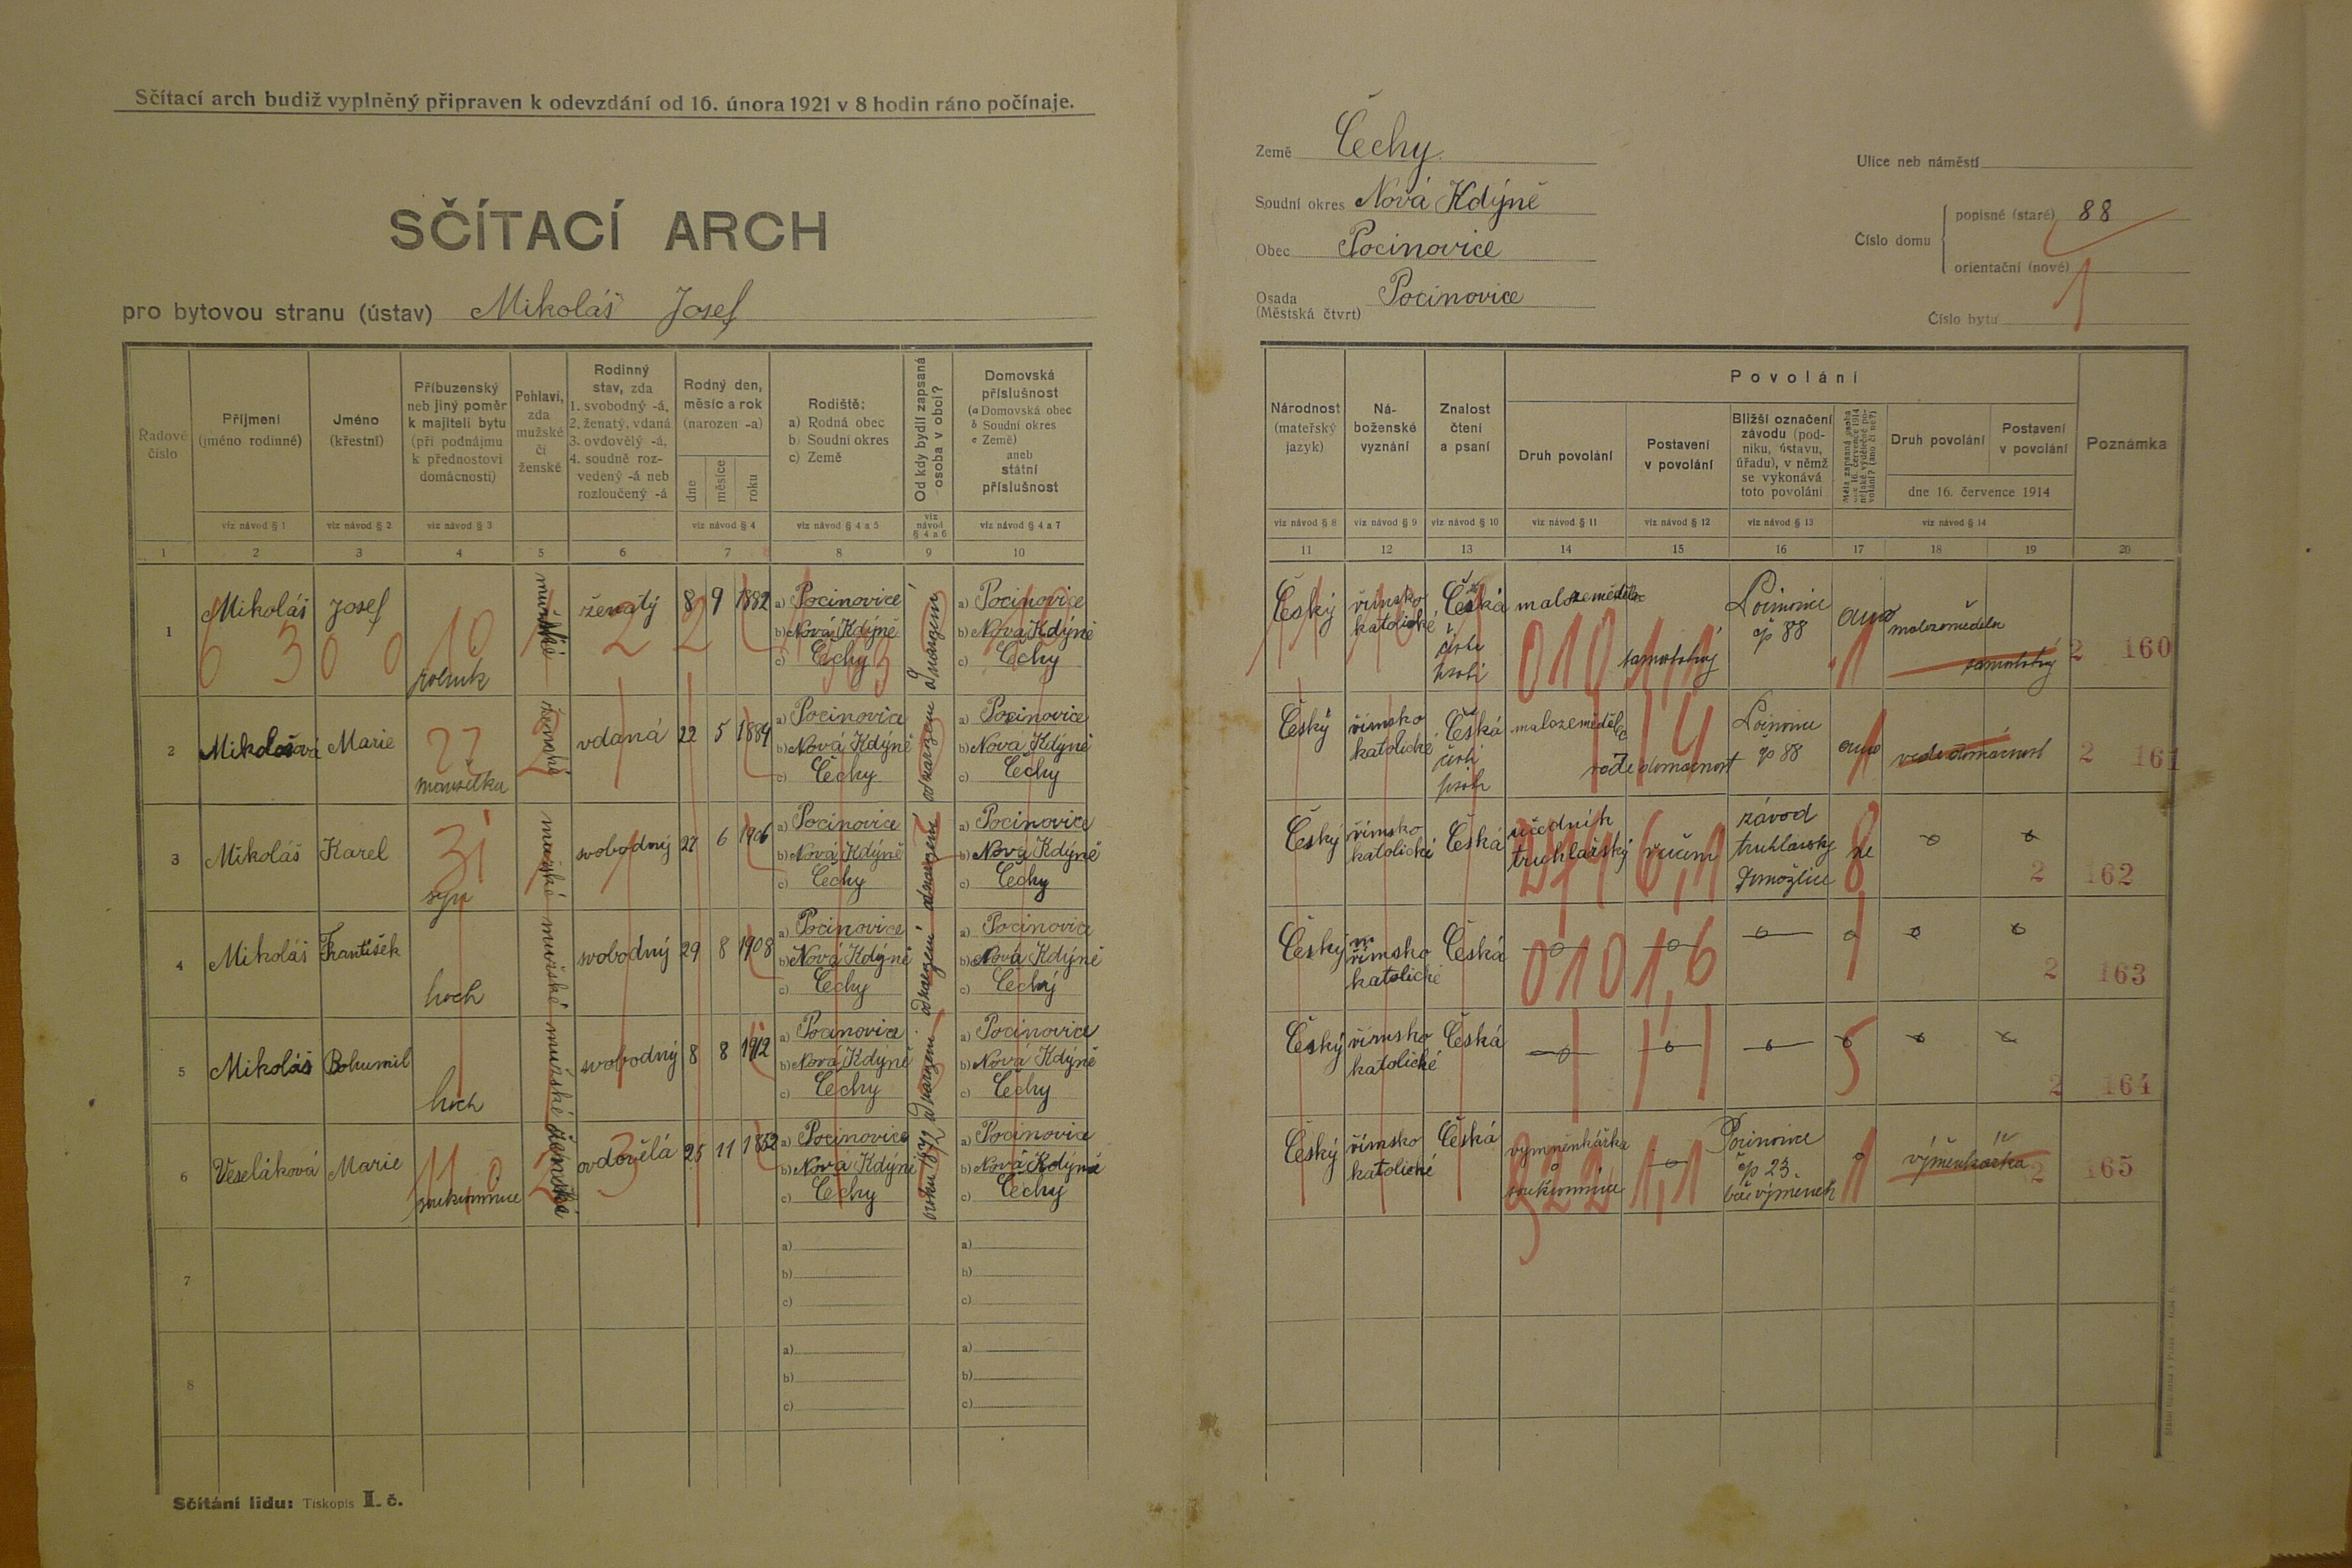 Sčítací arch budiž vyplněný připraven k odevzdání od 16. února 1921 v 8 hodin ráno počínaje.
SČÍTACÍ ARCH
pro bytovou stranu (ústav) Mikoláš Josef
Země Čechy
Soudní okres Nová Kdýně
Obec Pocinovice
Osada (Městská čtvrt) Pocinovice
Ulice neb náměstí
Číslo domu
popisné (staré) 88
orientační (nové)
Číslo bytu 1
Řadové číslo
Příjmení (jméno rodinné)
Jméno (křestní)
Příbuzenský neb jiný poměr k majiteli bytu (při podnájmu k přednostovi domácnosti)
Pohlaví, zda mužské či ženské
Rodinný stav, zda 1. svobodný -á, 2. ženatý, vdaná 3. ovdovělý -á, 4. soudně rozvedený -á neb rozloučený -á
Rodný den, měsíc a rok (narozen -a)
dne měsíce roku
Rodiště: a) Rodná obec b) Soudní okres c) Země
Od kdy bydlí zapsaná osoba v obci?
Domovská příslušnost (a Domovská obec b Soudní okres c Země) aneb státní příslušnost
viz návod § 1 viz návod § 2 viz návod § 3 viz návod § 4 viz návod § 4 a 5 viz návod § 4 a 6 viz návod § 4 a 7
1 2 3 4 5 6 7 8 9 10
Národnost (mateřský jazyk)
Náboženské vyznání
Znalost čtení a psaní
Povolání
Druh povolání
Postavení v povolání
Bližší označení závodu (podniku, ústavu, úřadu), v němž se vykonává toto povolání
Měla zapsaná osoba dne 16. července 1914 nějaké výdělečné povolání? (ano či ne?)
Druh povolání
Postavení v povolání
dne 16. července 1914
Poznámka
viz návod § 8 viz návod § 9 viz návod § 10 viz návod § 11 viz návod § 12 viz návod § 13 viz návod § 14
11 12 13 14 15 16 17 18 19 20
1 Mikoláš Josef rolník mužské ženatý 8 9 1882
a) Pocinovice b) Nová Kdýně c) Čechy
od narození
a) Pocinovice b) Nová Kdýně c) Čechy
Český římsko katolické Česká malozemědělec samostatný Pocinovice čp 88 ano malozemědělec samostatný 2 160
2 Mikolášová Marie manželka ženské vdaná 22 5 1884
a) Pocinovice b) Nová Kdýně c) Čechy
od narození
a) Pocinovice b) Nová Kdýně c) Čechy
Český římsko katolické Česká malozemědělec vede domácnost Pocinovice čp 88 ano vede domácnost 2 161
3 Mikoláš Karel syn mužské svobodný 27 6 1906
a) Pocinovice b) Nová Kdýně c) Čechy
od narození
a) Pocinovice b) Nová Kdýně c) Čechy
Český římsko katolické Česká učedník truhlářský závod truhlářský Domažlice ne 2 162
4 Mikoláš František hoch mužské svobodný 29 8 1908
a) Pocinovice b) Nová Kdýně c) Čechy
od narození
a) Pocinovice b) Nová Kdýně c) Čechy
Český římsko katolické Česká 2 163
5 Mikoláš Bohumil hoch mužské svobodný 8 8 1912
a) Pocinovice b) Nová Kdýně c) Čechy
od narození
a) Pocinovice b) Nová Kdýně c) Čechy
Český římsko katolické Česká 2 164
6 Veseláková Marie soukromnice ženské ovdovělá 25 11 1852
a) Pocinovice b) Nová Kdýně c) Čechy
a) Pocinovice b) Nová Kdýně c) Čechy
Český římsko katolické Česká výměnkářka soukromnice Pocinovice čp 23. výměnkářka 2 165
7 a) b) c) a) b) c)
8 a) b) c) a) b) c)
Sčítání lidu: Tiskopis I. č.